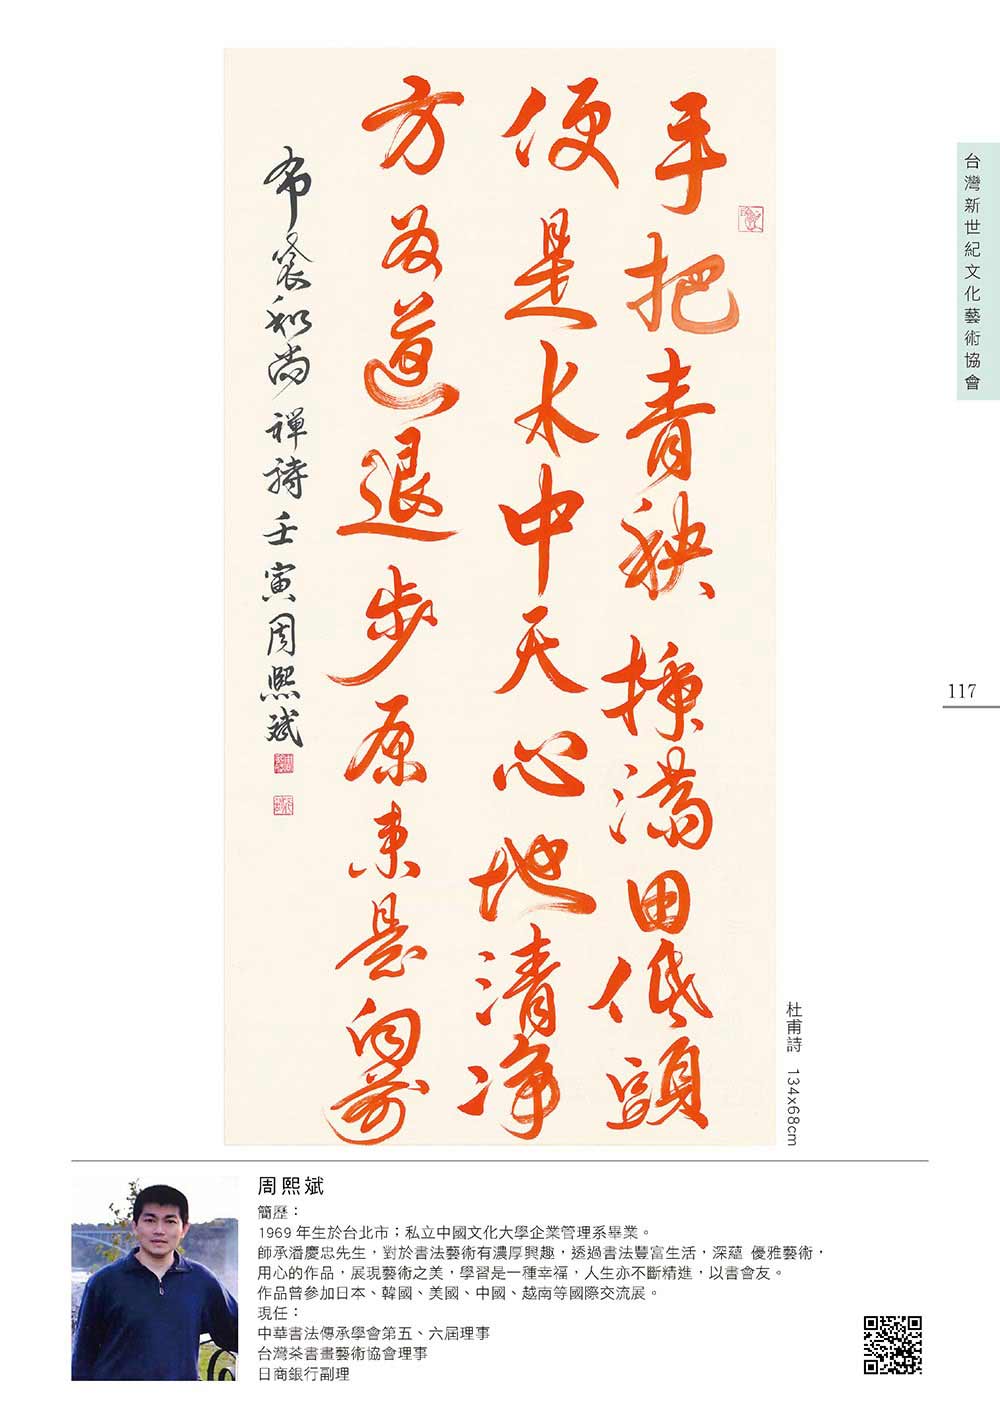 手把青秧插滿田低頭
便是水中天心地清淨
方為道退步原來是向前
布袋和尚禪詩壬寅周熙斌
台灣新世紀文化藝術協會
117
杜甫詩 134x68cm
周熙斌
簡歷：
1969 年生於台北市；私立中國文化大學企業管理系畢業。
師承潘慶忠先生，對於書法藝術有濃厚興趣，透過書法豐富生活，深蘊 優雅藝術，
用心的作品，展現藝術之美，學習是一種幸福，人生亦不斷精進，以書會友。
作品曾參加日本、韓國、美國、中國、越南等國際交流展。
現任：
中華書法傳承學會第五、六屆理事
台灣茶書畫藝術協會理事
日商銀行副理